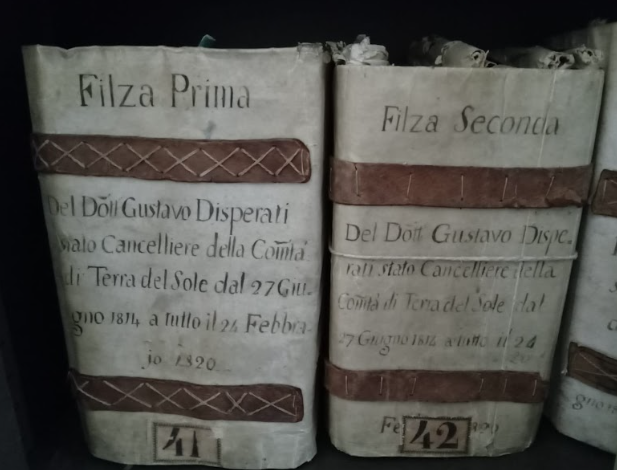 Filza Prima
Del Dõtt Gustavo Disperati
stato Cancelliere della Comτà
di Terra del Sole dal 27 Giu-
gno 1814 a tutto il 24 Febbra-
jo 1820
41
Filza Seconda
Del Dõtt Gustavo Dispe-
rati stato Cancelliere della
Comτà di Terra del Sole dal
27 Giugno 1814 a tutto il 24
Fe
42